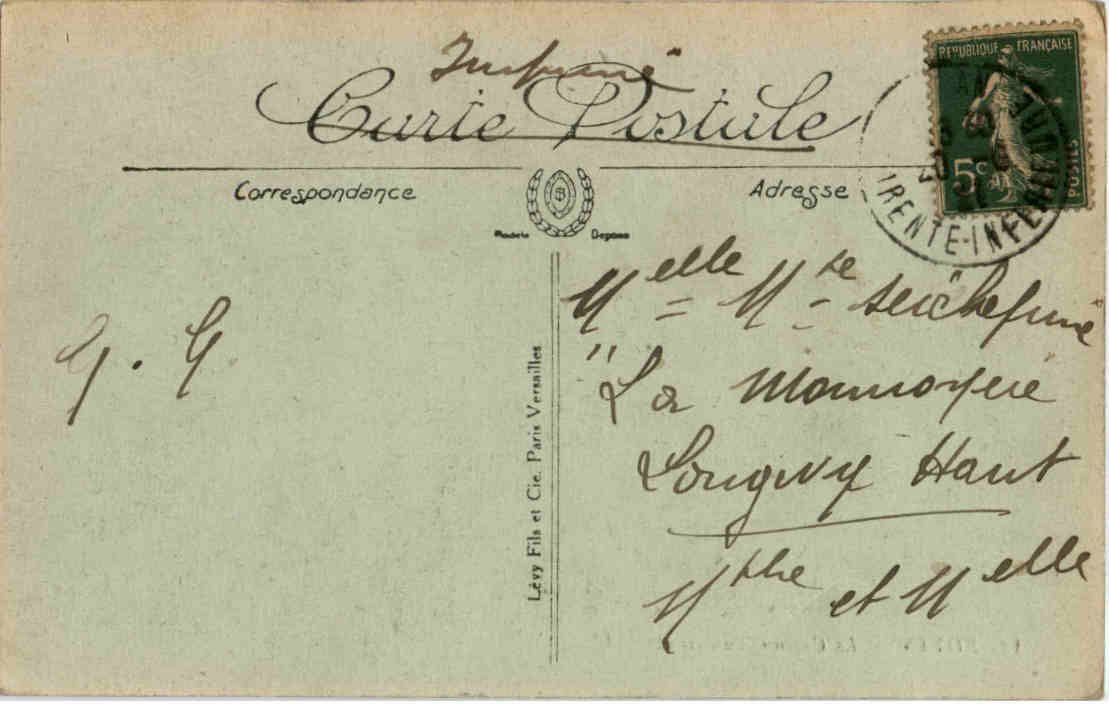 Imprimé
Carte Postale
RÉPUBLIQUE FRANÇAISE
5c
POSTES
RENTE-INFÉR
Correspondance
Adresse
Modèle Déposé
G. G
Lévy Fils et Cie. Paris Versailles
Melle Mte
"La Monnoyère
Longwy Haut
Mthe et Melle